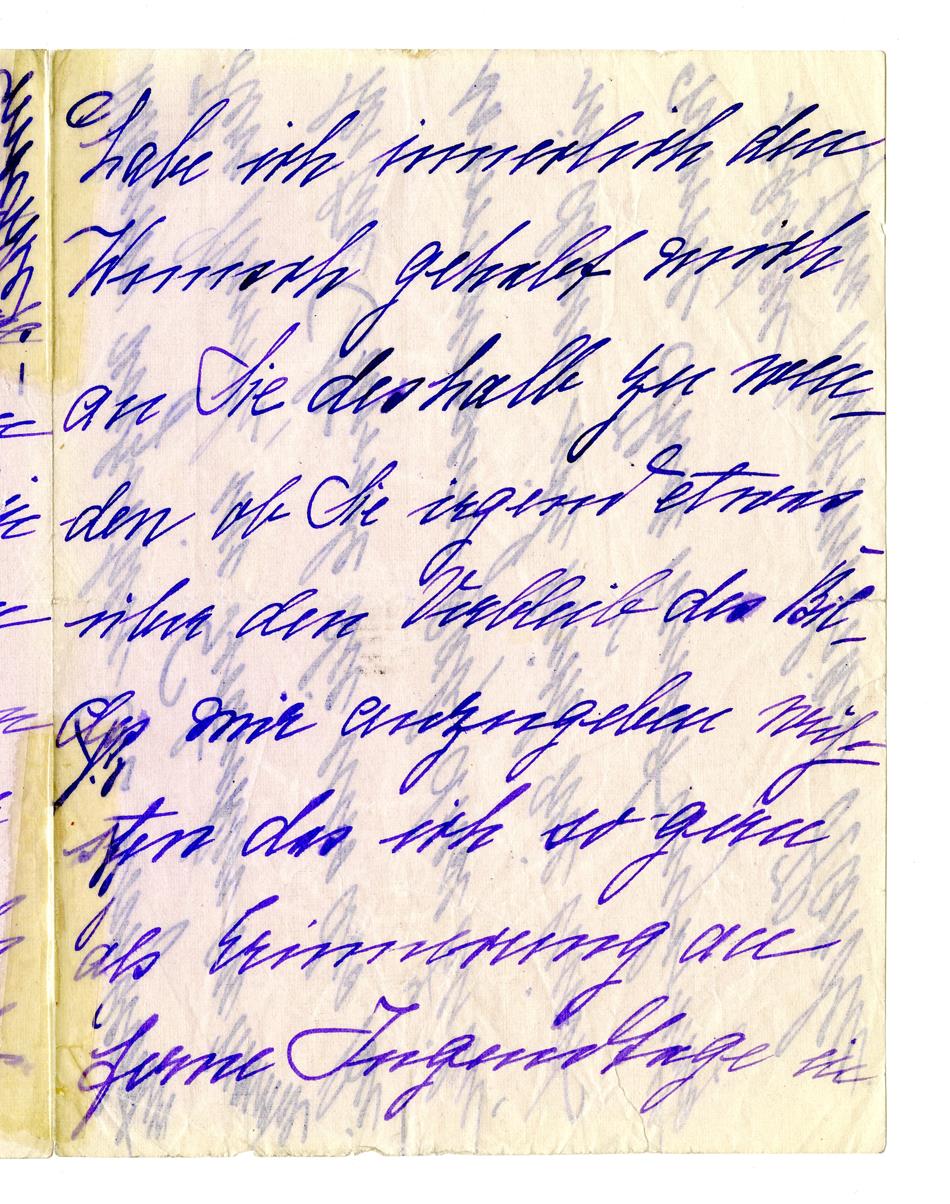 habe ich innerlich den
Wunsch gehabt mich
an Sie deshalb zu wen-
den ob Sie irgend etwas
über den Verbleib des Bil-
des mir anzugeben wüß-
ten das ich so gern
als Erinnerung an
ferne Jugendtage in